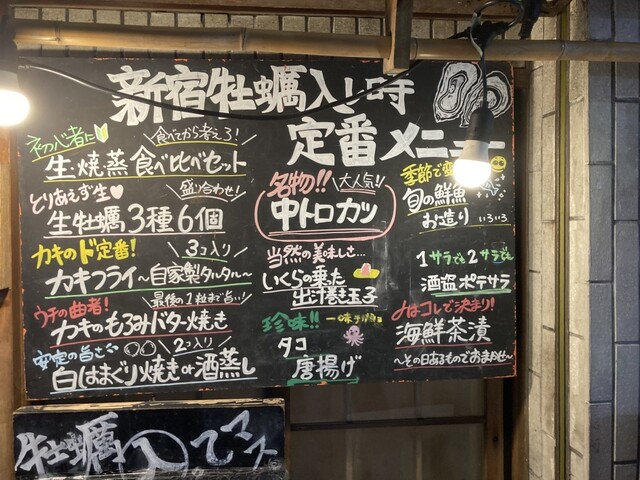 新宿牡蠣入レ時
定番メニュー
初心者に
食べてから考えろ!
生・焼・蒸 食べ比べセット
とりあえず生
盛り合わせ!
生牡蠣3種6個
カキのド定番!
3コ入り
カキフライ〜自家製タルタル〜
ウチの曲者!
最後の1粒まで旨い
カキのもろみバター焼き
安定の旨さ
2コ入り
白はまぐり焼きor酒蒸し
名物!!
大人気!!
中トロカツ
当然の美味しさ…
いくらの乗った
出汁巻き玉子
珍味!!
タコ
唐揚げ
季節で変
旬の鮮魚
お造り いろいろ
1サラでも2サラでも
酒盗ポテサラ
〆はコレで決まり!
海鮮茶漬
〜その日あるものでおまかせ〜
牡蠣入ってマス